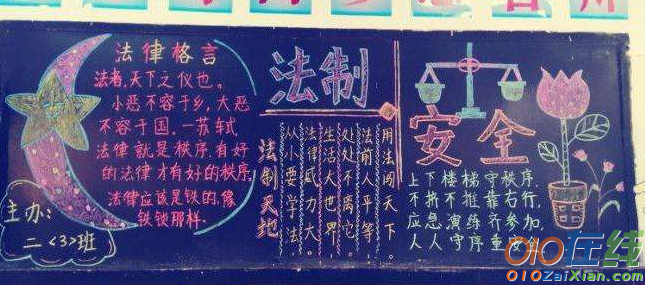 法律格言
法者,天下之仪也。
小恶不容于乡,大恶
不容于国。一苏轼
法律就是秩序,有好
的法律才有好的秩序,
法律应该是铁的,像
铁锁那样.
主办:
二<3>班
法制
法制天地
从小要学法
法律威力大。
生活大世界
处处不离它。
法前人平等
用法闯天下。
安全
上下楼梯守秩序,
不挤不推靠右行,
应急演练齐参加,
人人守序重
010在线
010ZaiXian.com